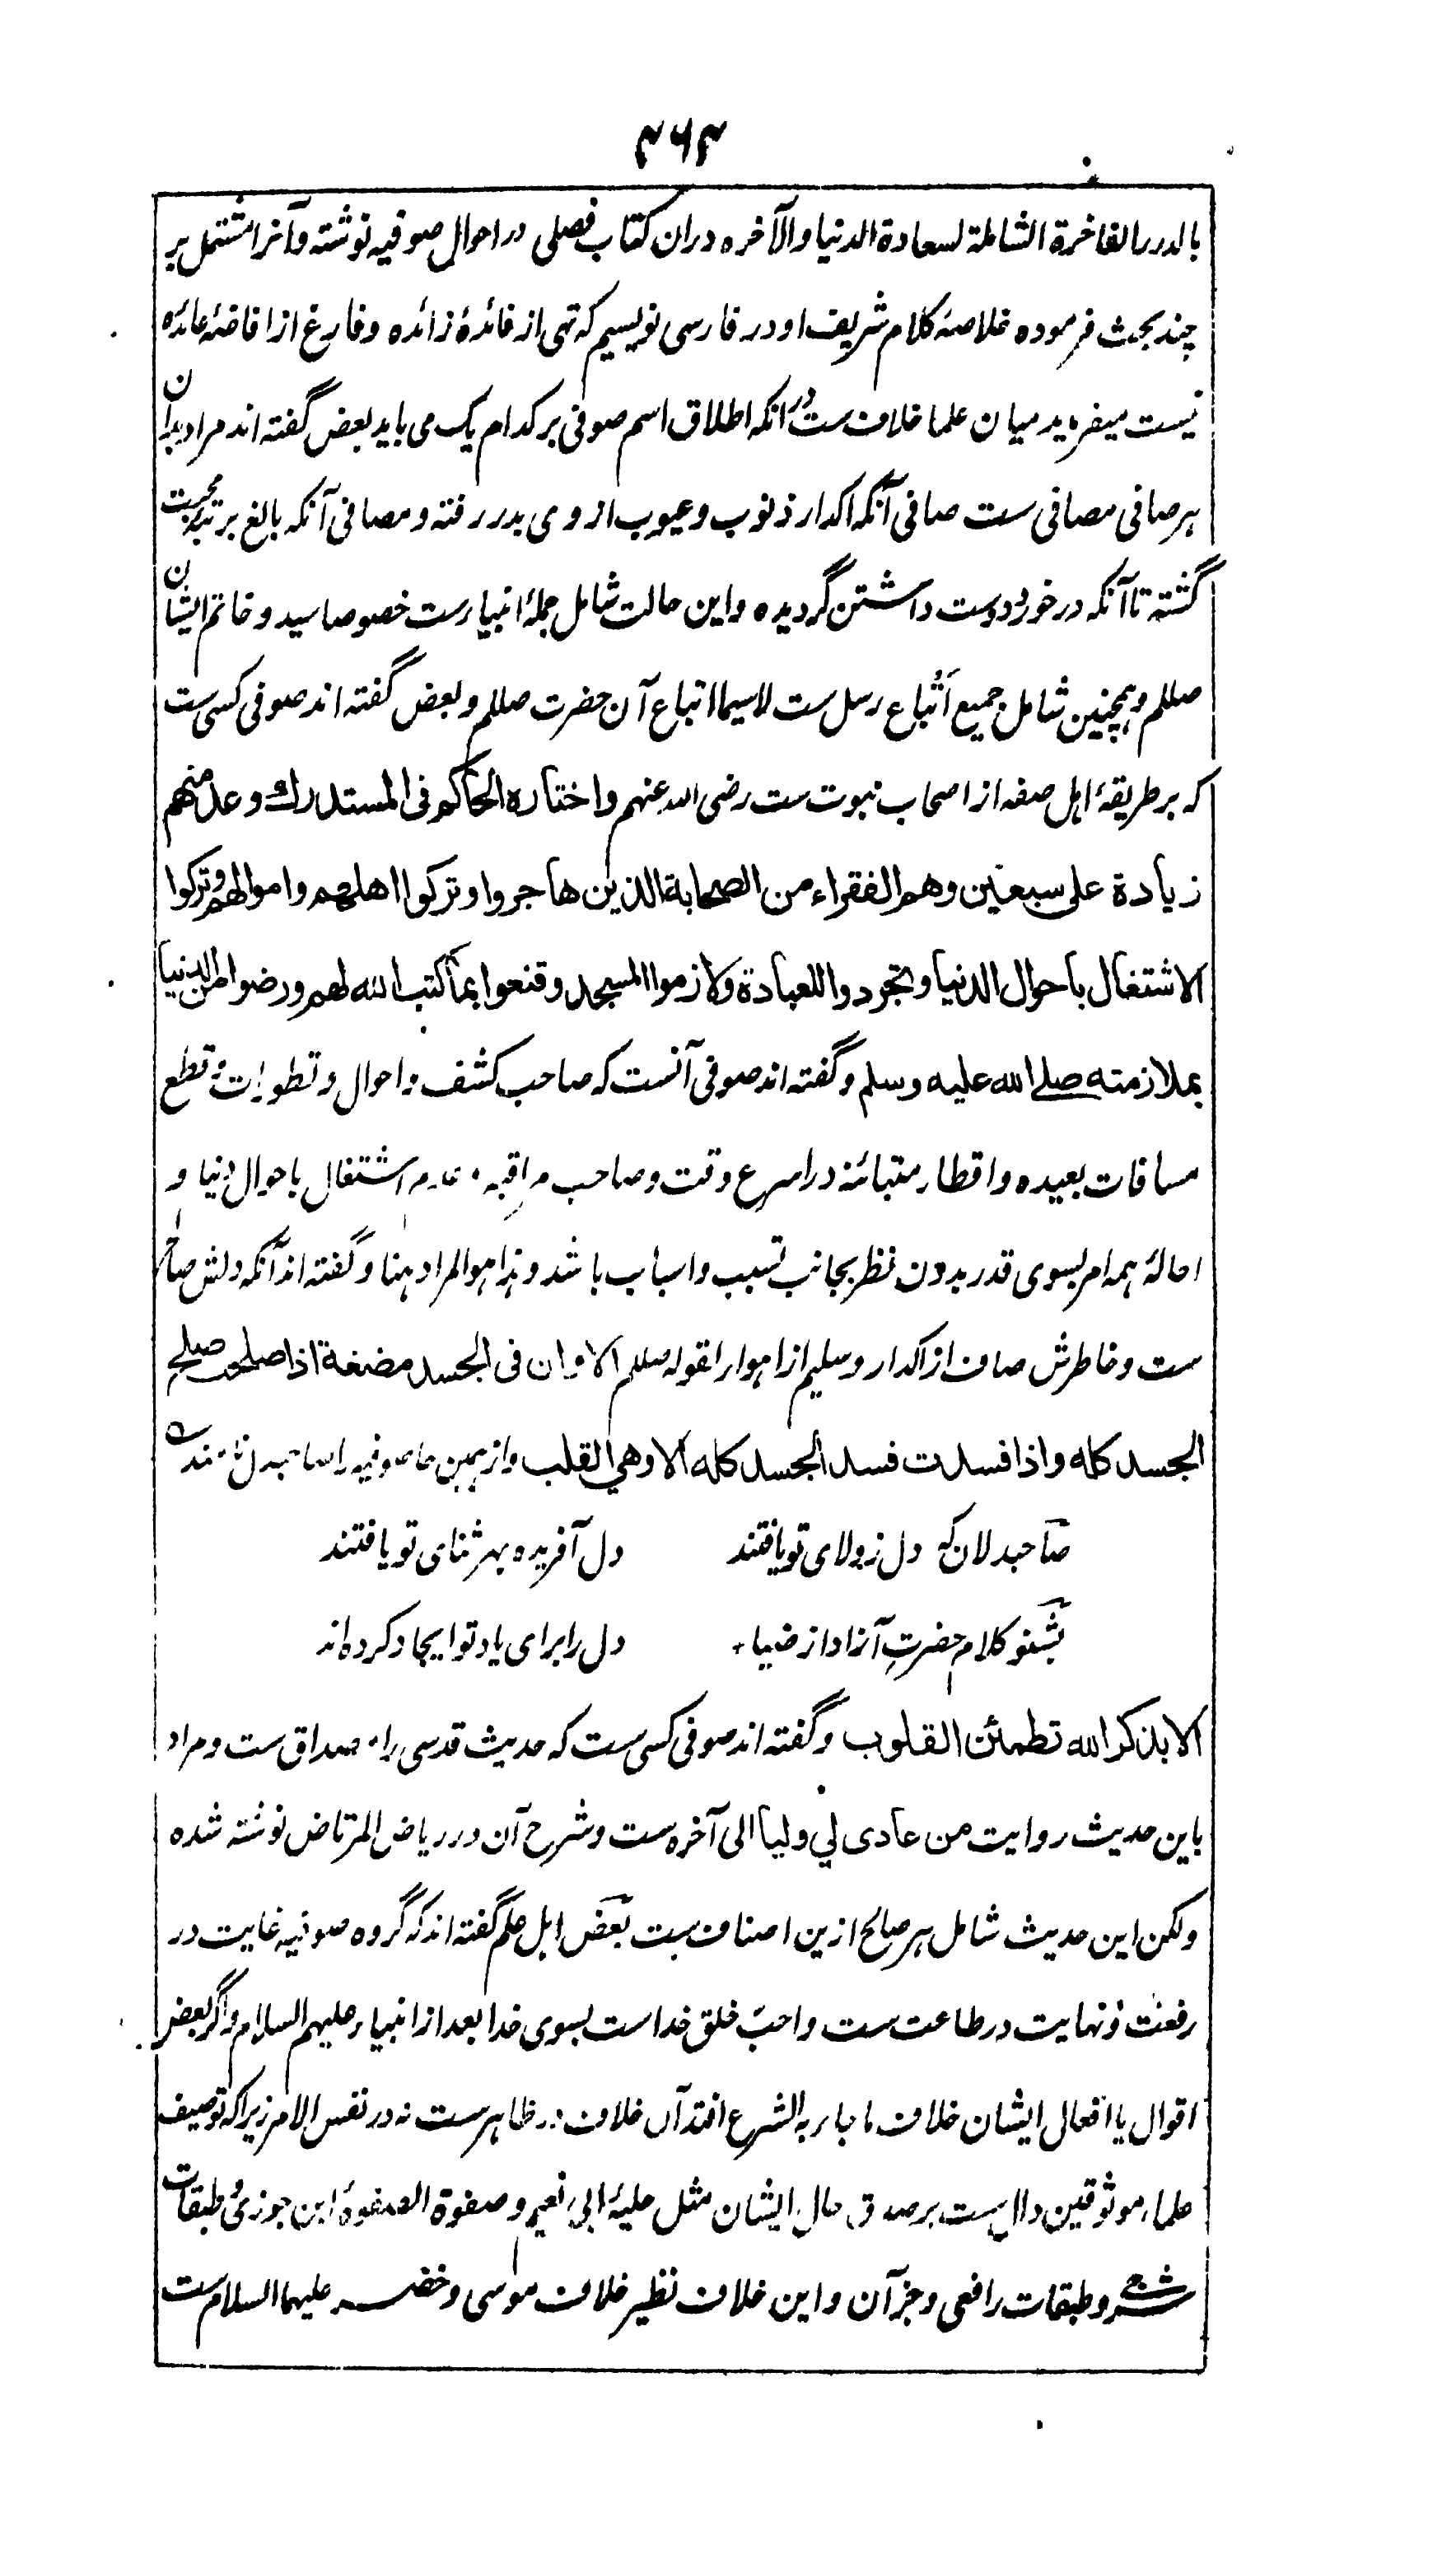 ۴۶۴
بالدرر الفاخرة الشاملة لسعادة الدنیا والآخره دران کتاب فصلی در احوال صوفیه نوشته وآنرا مشتمل بر
چند بحث فرموده خلاصۂ کلام شریف او در فارسی نویسیم که تهی از فائدۂ زائده وفارغ از افاضۂ عائده
نیست میفرماید میان علما خلاف ست در انکه اطلاق اسم صوفی بر کدام یک می باید بعض گفته اند مراد بدان
هر صافی مصافی ست صافی آنکه اکدار ذنوب وعیوب از وی بدر رفته ومصافی آنکه بالغ برتبۂ محبت
گشته تا آنکه در خور دوست داشتن گردیده واین حالت شامل جملۂ انبیارست خصوصا سید وخاتم ایشان
صللم وهمچنین شامل جمیع أتباع رسل ست لاسیما اتباع آن حضرت صللم وبعض گفته اند صوفی کسی ست
که بر طریقۂ اهل صفه از اصحاب نبوت ست رضی الله عنهم واختاره الحاكم فى المستدرك وعد منهم
زيادة على سبعين وهم الفقراء من الصحابة الذين هاجروا وتركوا اهلهم واموالهم وتركوا
الاشتغال باحوال الدنيا وتجردوا للعبادة ولازموا المسجد وقنعوا بما كتب الله لهم ورضوا من الدنيا
بملازمته صلے الله عليه وسلم وگفته اند صوفی آنست که صاحب کشف واحوال وتطورات وقطع
مسافات بعیده واقطار متبائنه در اسرع وقت وصاحب مراقبه وعدم اشتغال باحوال دنیا و
احالۂ همه امر بسوی قدر بدون نظر بجانب تسبب واسباب باشد وهذا هو المراد هنا وگفته اند آنکه دلش صالح
ست وخاطرش صاف از اکدار وسلیم از اهوار لقوله صللم الا وان فى الجسد مضغة اذا صلحت صلح
الجسد كله واذا فسدت فسد الجسد كله الا وهي القلب واز همین جا صوفیه را صاحبدلان نامند ۵
صاحبدلان که دل ز ولای تو یافتند دل آفریده بهر ثنای تو یافتند
بشنو کلام حضرتِ آزاد از ضیاء دل را برای یاد تو ایجاد کرده اند
الا بذكر الله تطمئن القلوب وگفته اند صوفی کسی ست که حدیث قدسی را مصداق ست ومراد
باین حدیث روایت من عادى لي وليا الی آخره ست وشرح آن در ریاض المرتاض نوشته شده
ولکن این حدیث شامل هر صالح ازین اصناف ست بعض اهل علم گفته اند که گروه صوفیه غایت در
رفعت ونهایت در طاعت ست واحبّ خلق خداست بسوی خدا بعد از انبیاء علیهم السلام واگر بعض
اقوال یا افعال ایشان خلاف ما جاء به الشرع افتد آن خلاف در ظاهرست نه در نفس الامر زیرا که توصیف
علماء موثوقین دال ست بر صدق حال ایشان مثل حلیۂ ابی نعیم وصفوة الصفوۂ ابن جوزی وطبقات
شرجی وطبقات رافعی وجز آن واین خلاف نظیر خلاف موسی وخضر علیهما السلام ست